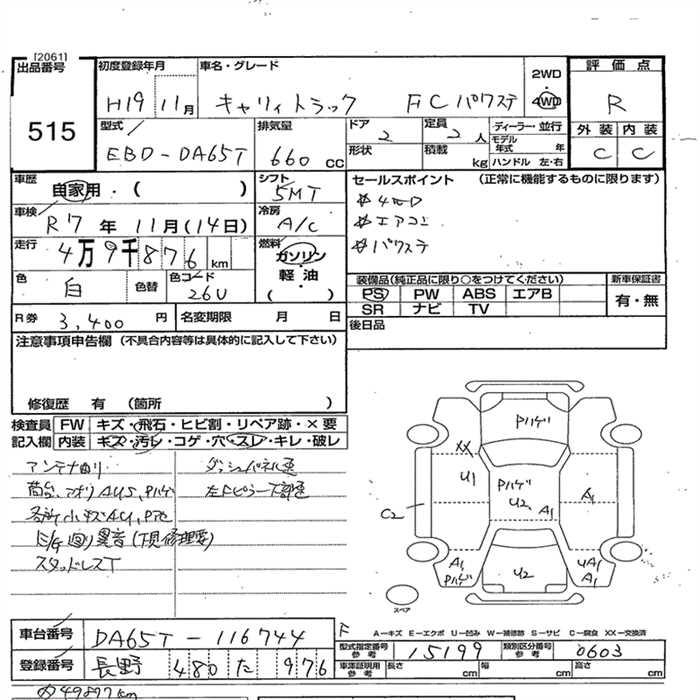 [2061]
出品番号
515
初度登録年月
H19 11月
車名・グレード
キャリィトラック FCパワステ
2WD
4WD
評価点
R
外装 内装
C C
型式
EBD-DA65T
排気量
660 cc
ドア
2
形状
定員
2人
積載
kg
ディーラー・並行
モデル年式 年
ハンドル 左・右
車歴
自家用・( )
車検
R7年11月(14日)
走行
4万9千876km
色
白
色替
色コード
26U
シフト
5MT
冷房
A/C
燃料
ガソリン
軽油
( )
セールスポイント (正常に機能するものに限ります)
☆4WD
☆エアコン
☆パワステ
装備品(純正品に限り○をつけてください)
PS PW ABS エアB
SR ナビ TV
新車保証書
有・無
後日品
R券
3,400円
名変期限 月 日
注意事項申告欄(不具合内容等は具体的に記入して下さい)
修復歴 有 (箇所 )
検査員記入欄
FW キズ・飛石・ヒビ割・リペア跡・×要
内装 キズ・汚レ・コゲ・穴・スレ・キレ・破レ
アンテナ曲り
荷台、アオリAUS,Pハゲ
各所小キズAU,P
E/G回り異音(下見修理要)
スタッドレスT
ダッシュパネル
左Fピラー下部
Pハゲ
XX
U1
Pハゲ
U2
A1
A1
C2
A1
Pハゲ
U2
UA1
A1
スペア
A―キズ E―エクボ U―凹み W―補修跡 S―サビ C―腐食 XX―交換済
車台番号
DA65T-116744
登録番号
長野 480 た 976
F
型式指定番号 参考
15199
類別区分番号 参考
0603
車庫証明用 参考
長さ cm
幅 cm
高さ cm
49877km